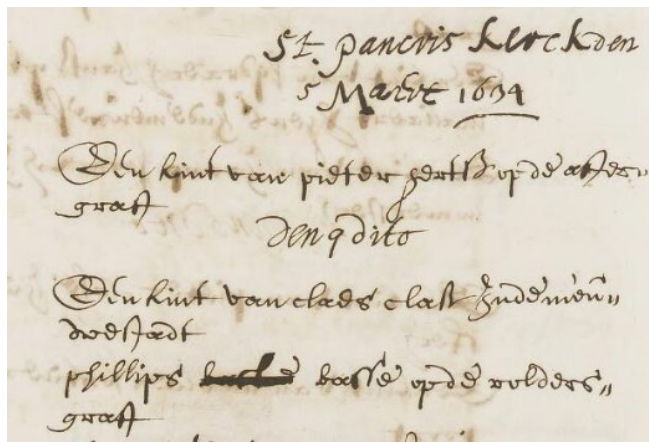 St. pancris kerck den
5 Maert 1634
Een kint van pieter gertß op de after
graft
den 9 dito
Een kint van claes clasß Jnde nieu„
we stadt
phillips basse op de volders„
graft